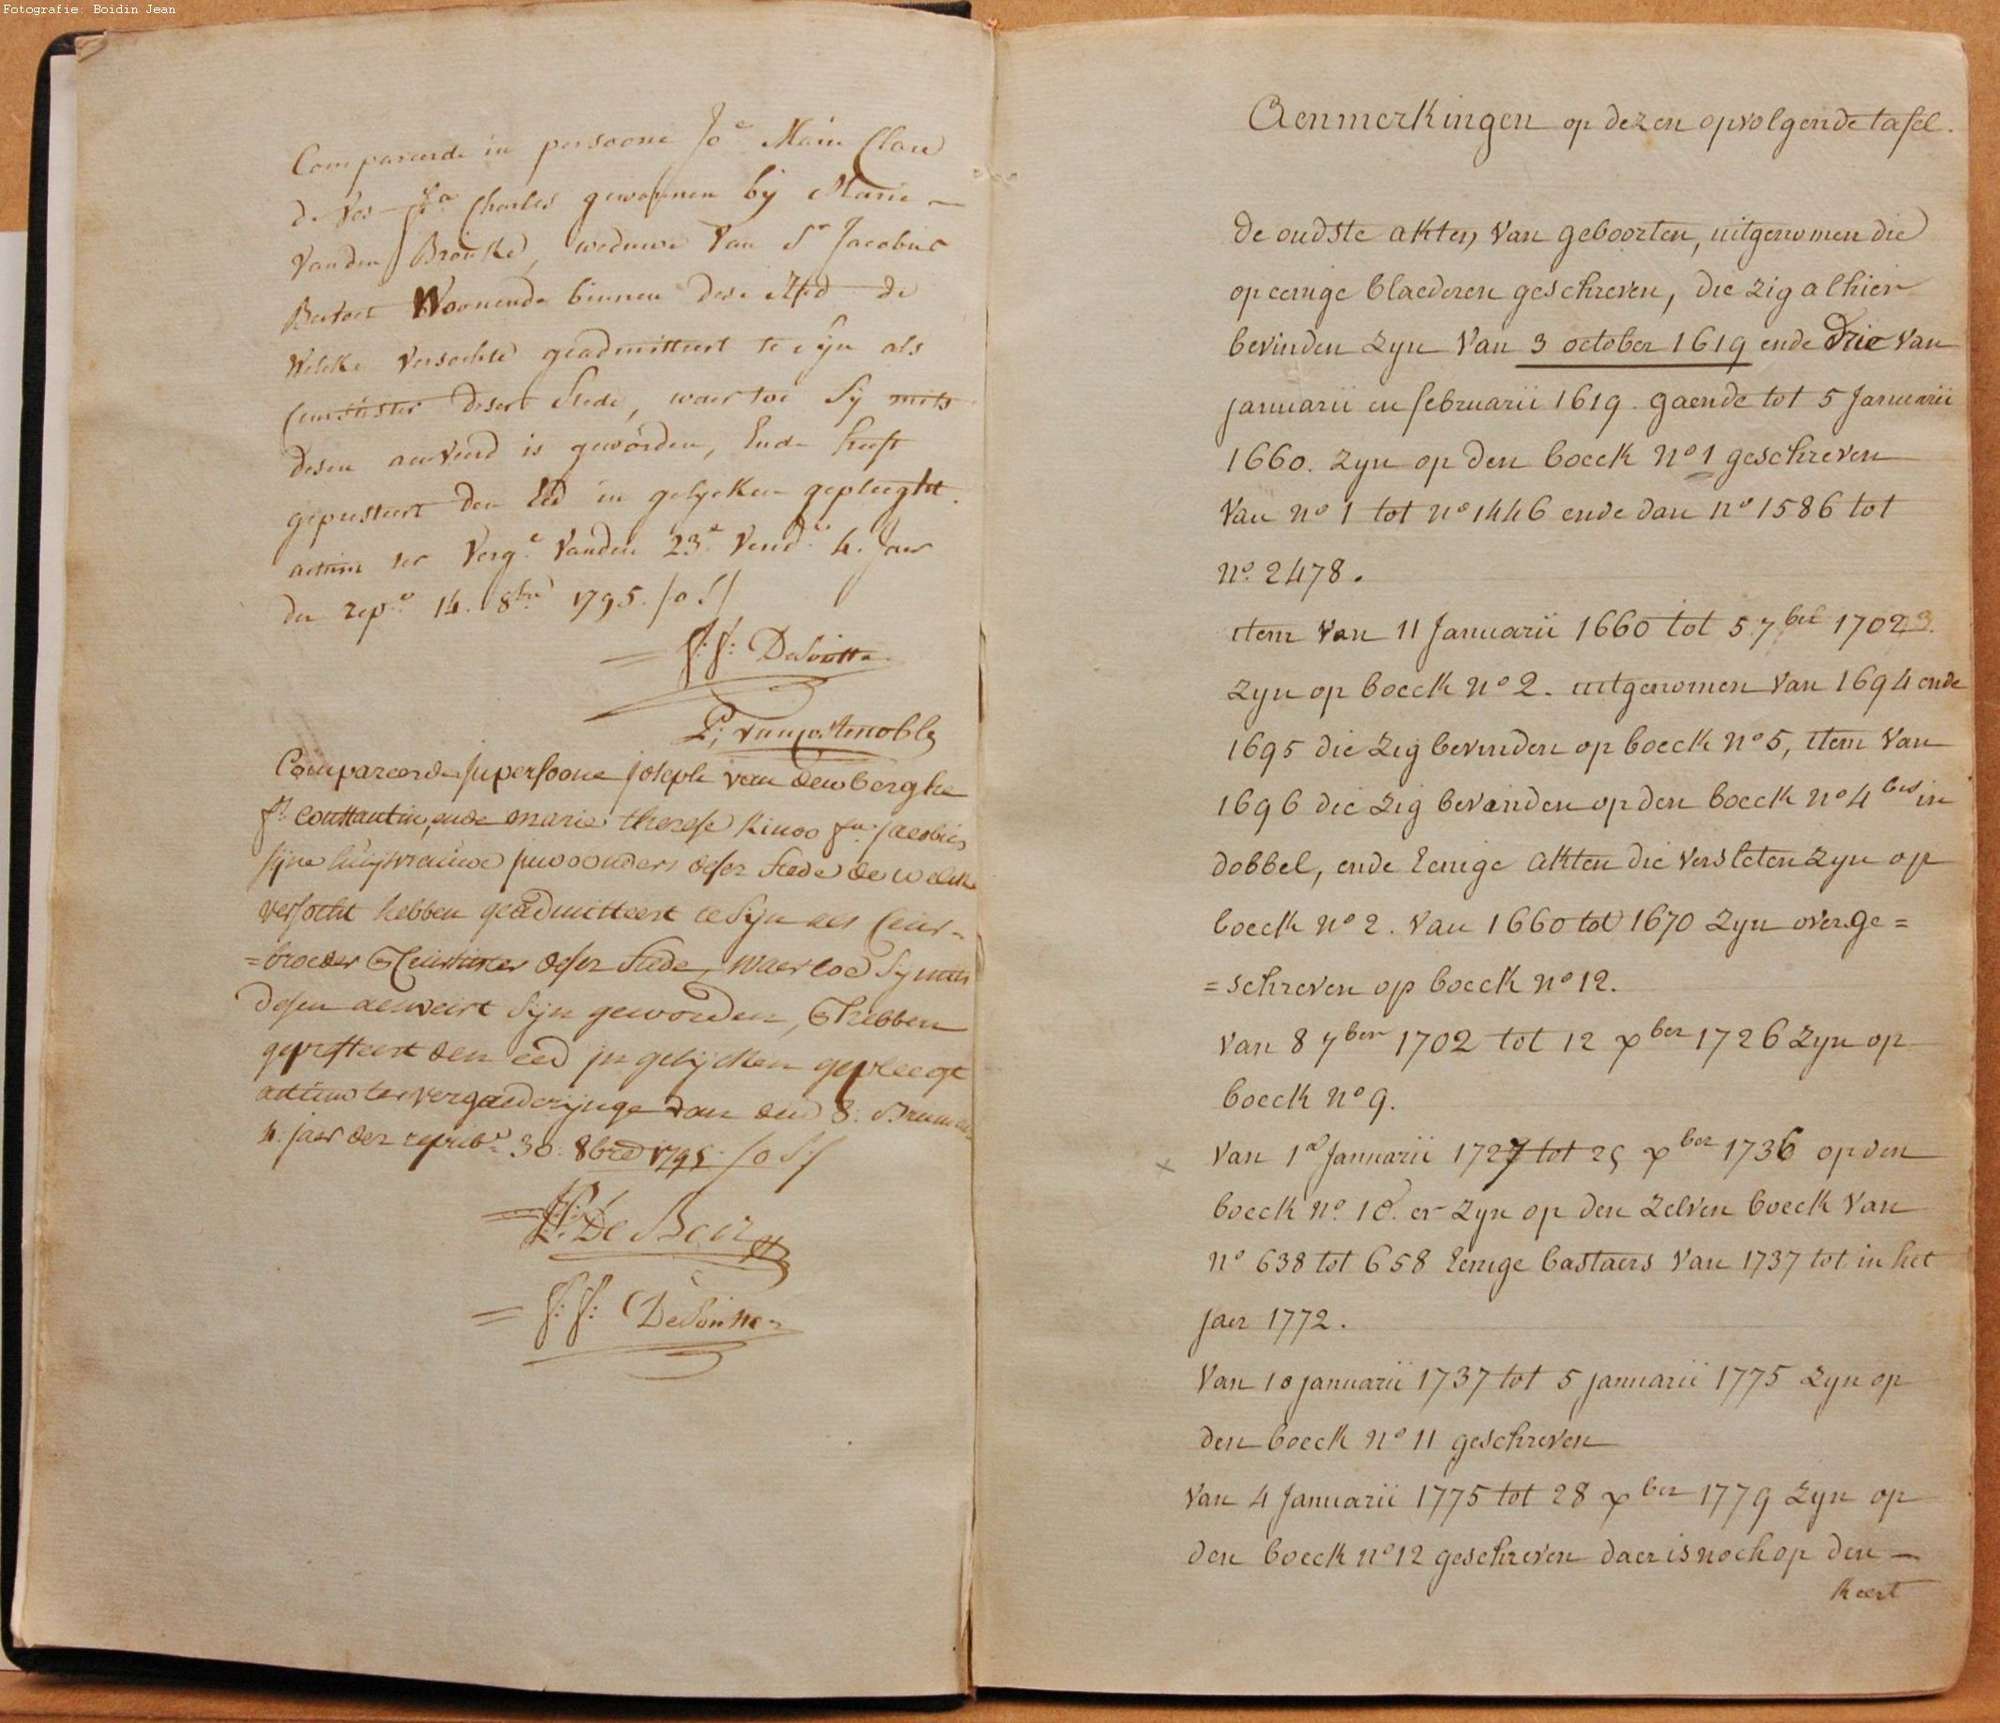 Fotografie: Boidin Jean
Compareerde in persoone Jo.e Marie Clare
de Vos f.a Charles gewonnen bij Marie
vanden Brouke, weduwe van S.r Jacobus
Bertoet Woonende binnen dese Sted de
welcke versochte geadmitteert te sijn als
Ceursuster deser Stede, waer toe Sÿ mits
desen aenveird is geworden, Ende heeft
gepresteert den Eed in gelycken gepleeght.
actum ter Verg.e vanden 23.e Vend.re 4. Jaer
der rep.e 14. 8bre 1795.
f: f: DeSoutter
P: vancostenoble
Compareerde in persoone joseph van den berghe
f.s Constantin, ende marie therese kinoo f.a jacobus
sijne huijsvrauwe inwoonders deser stede de welcke
versocht hebben geadmitteert te sijn als Ceur-
=broeder & Ceursuster deser stede, waer toe sij mits
desen aenveirt sijn geworden, & hebben
gepresteert den eed in gelijcken gepleegt
actum ter vergaederijnge van den 8. Brumaire
4. jaer der repub.e 30. 8bre 1795.
De Beir
f: f: DeSoutter
Aenmerkingen op dezen opvolgende tafel.
de oudste akten van geboorten, uitgenomen die
op eenige blaederen geschreven, die zig alhier
bevinden zyn van 3 october 1619 ende drie van
januarii en februarii 1619. gaende tot 5 Januarii
1660. zyn op den boeck n° 1 geschreven
van n° 1 tot n° 1446 ende van n° 1586 tot
n° 2478.
item van 11 Januarii 1660 tot 5 7ber 1702
zyn op boeck n° 2. uitgenomen van 1694 ende
1695 die zig bevinden op boeck n° 5, item van
1696 die zig bevinden op den boeck n° 4 bis in
dobbel, ende Eenige akten die versleten zyn op
boeck n° 2. van 1660 tot 1670 zyn overge=
=schreven op boeck n° 12.
van 8 7ber 1702 tot 12 xber 1726 zyn op
boeck n° 9.
van 1e Januarii 1727 tot 25 xber 1736 op den
boeck n° 10. er zyn op den zelven boeck van
n° 638 tot 658 Eenige bastaers van 1737 tot in het
Jaer 1772.
van 10 januarii 1737 tot 5 januarii 1775 zyn op
den boeck n° 11 geschreven
van 4 Januarii 1775 tot 28 xber 1779 zyn op
den boeck n° 12 geschreven daer is noch op den
keert